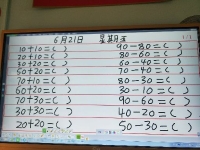 6月21日 星期五
10+10=( ) 90-80=( )
20+20=( ) 80-60=( )
30+20=( ) 60-40=( )
50+20=( ) 70-40=( )
70+10=( ) 80-30=( )
60+20=( ) 30-10=( )
70+30=( ) 90-60=( )
30+30=( ) 40-20=( )
20+20=( ) 50-30=( )